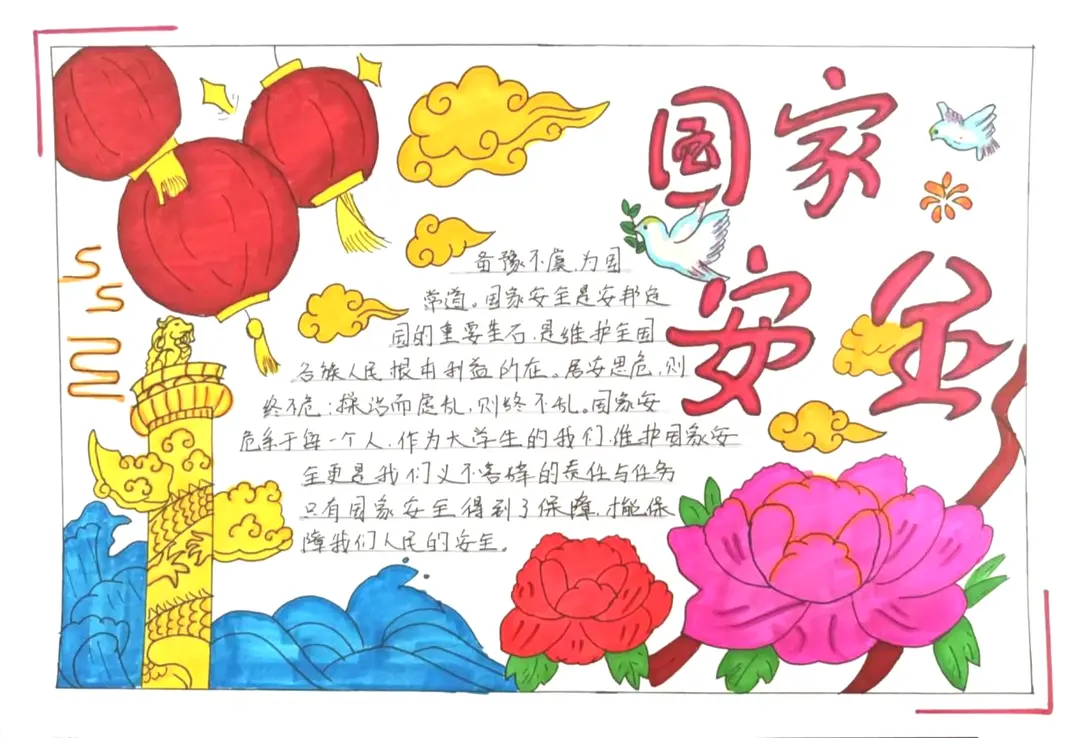 国家
安全
备豫不虞,为国
常道。国家安全是安邦定
国的重要基石,是维护全国
各族人民根本利益所在。居安思危,则
终不危;操治而虑乱,则终不乱。国家安
危系于每一个人,作为大学生的我们,维护国家安
全更是我们义不容辞的责任与任务
只有国家安全得到了保障,才能保
障我们人民的安全。